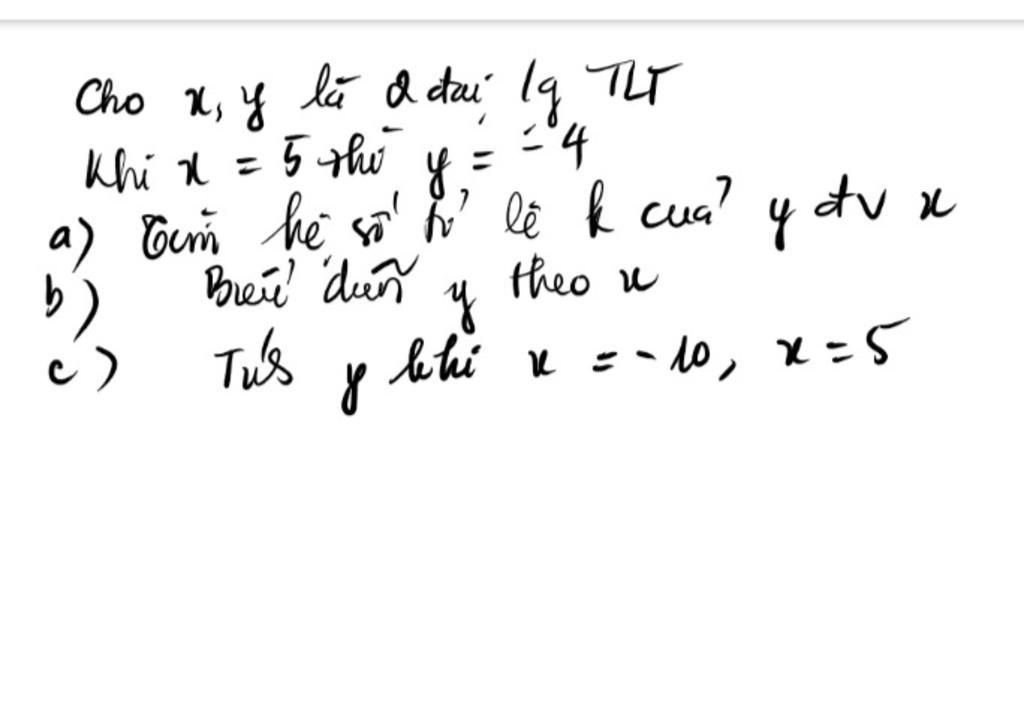 Cho x, y là 2 đại lg TLT
Khi x = 5 thì y = -4
a) Tìm hệ số tỉ lệ k của y đv x
b) Biểu diễn y theo x
c) Tính y khi x = -10, x = 5